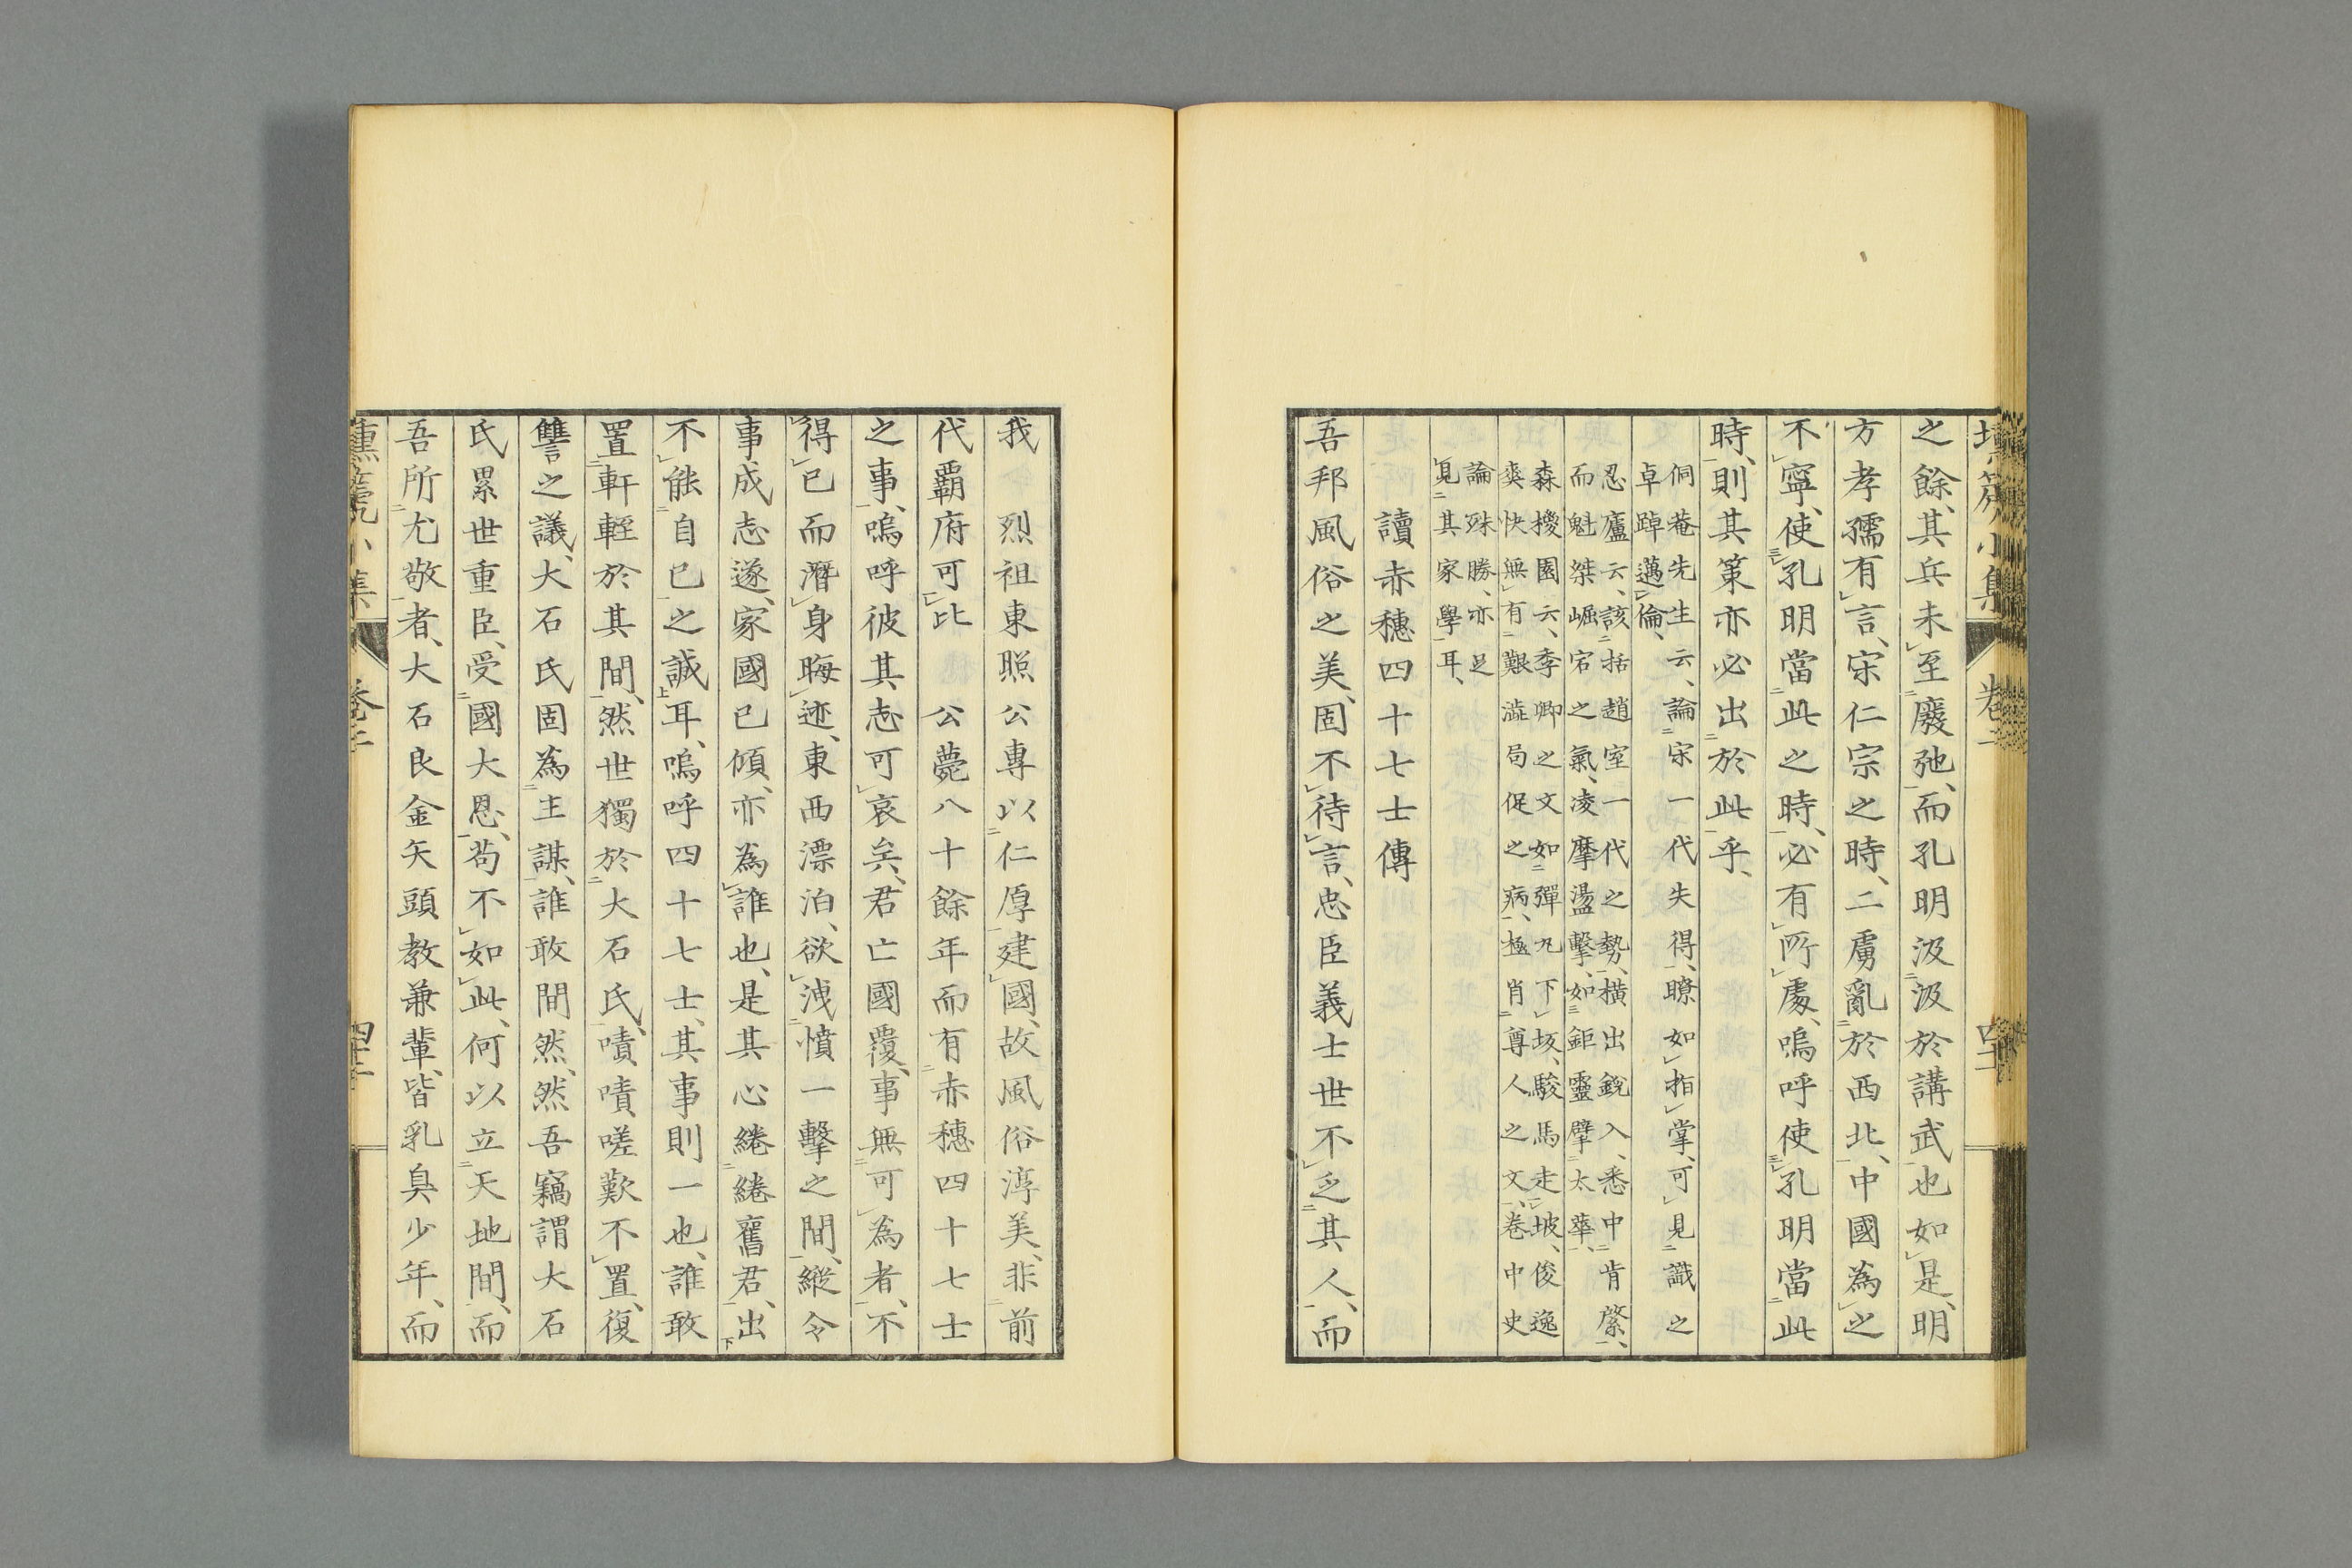 之餘、其兵未至廢弛、而孔明汲汲於講武也如是、明
方孝孺有言、宋仁宗之時、二虜亂於西北、中國為之
不寧、使孔明當此之時、必有所處、嗚呼使孔明當此
時、則其策亦必出於此乎、
侗菴先生云、論宋一代失得、瞭如指掌、可見識之
卓踔邁倫、
忍廬云、該括趙室一代之勢、橫出銳入、悉中肯綮、
而魁桀崛宕之氣、凌摩盪擊、如鉅靈擘太華、
森擾園云、季卿之文如彈丸下坂、駿馬走坡、俊逸
爽快無有艱澁局促之病、極肖尊人之文、卷中史
論殊勝、亦足
見其家學耳、
讀赤穗四十七士傳
吾邦風俗之美、固不待言、忠臣義士世不乏其人、而
我烈祖東照公專以仁厚建國、故風俗淳美、非前
代覇府可比公薨八十餘年而有赤穗四十七士
之事、嗚呼彼其志可哀矣、君亡國覆、事無可為者、不
得已而潛身晦迹、東西漂泊、欲洩憤一擊之間、縱令
事成志遂、家國已傾、亦為誰也、是其心綣綣舊君、出
不能自已之誠耳、嗚呼四十七士、其事則一也、誰敢
置軒輊於其間、然世獨於大石氏、嘖嘖嗟歎不置、復
讐之議、大石氏固為主謀、誰敢間然、然吾竊謂大石
氏累世重臣、受國大恩、苟不如此、何以立天地間、而
吾所尤敬者、大石良金矢頭教兼輩、皆乳臭少年、而
卷二